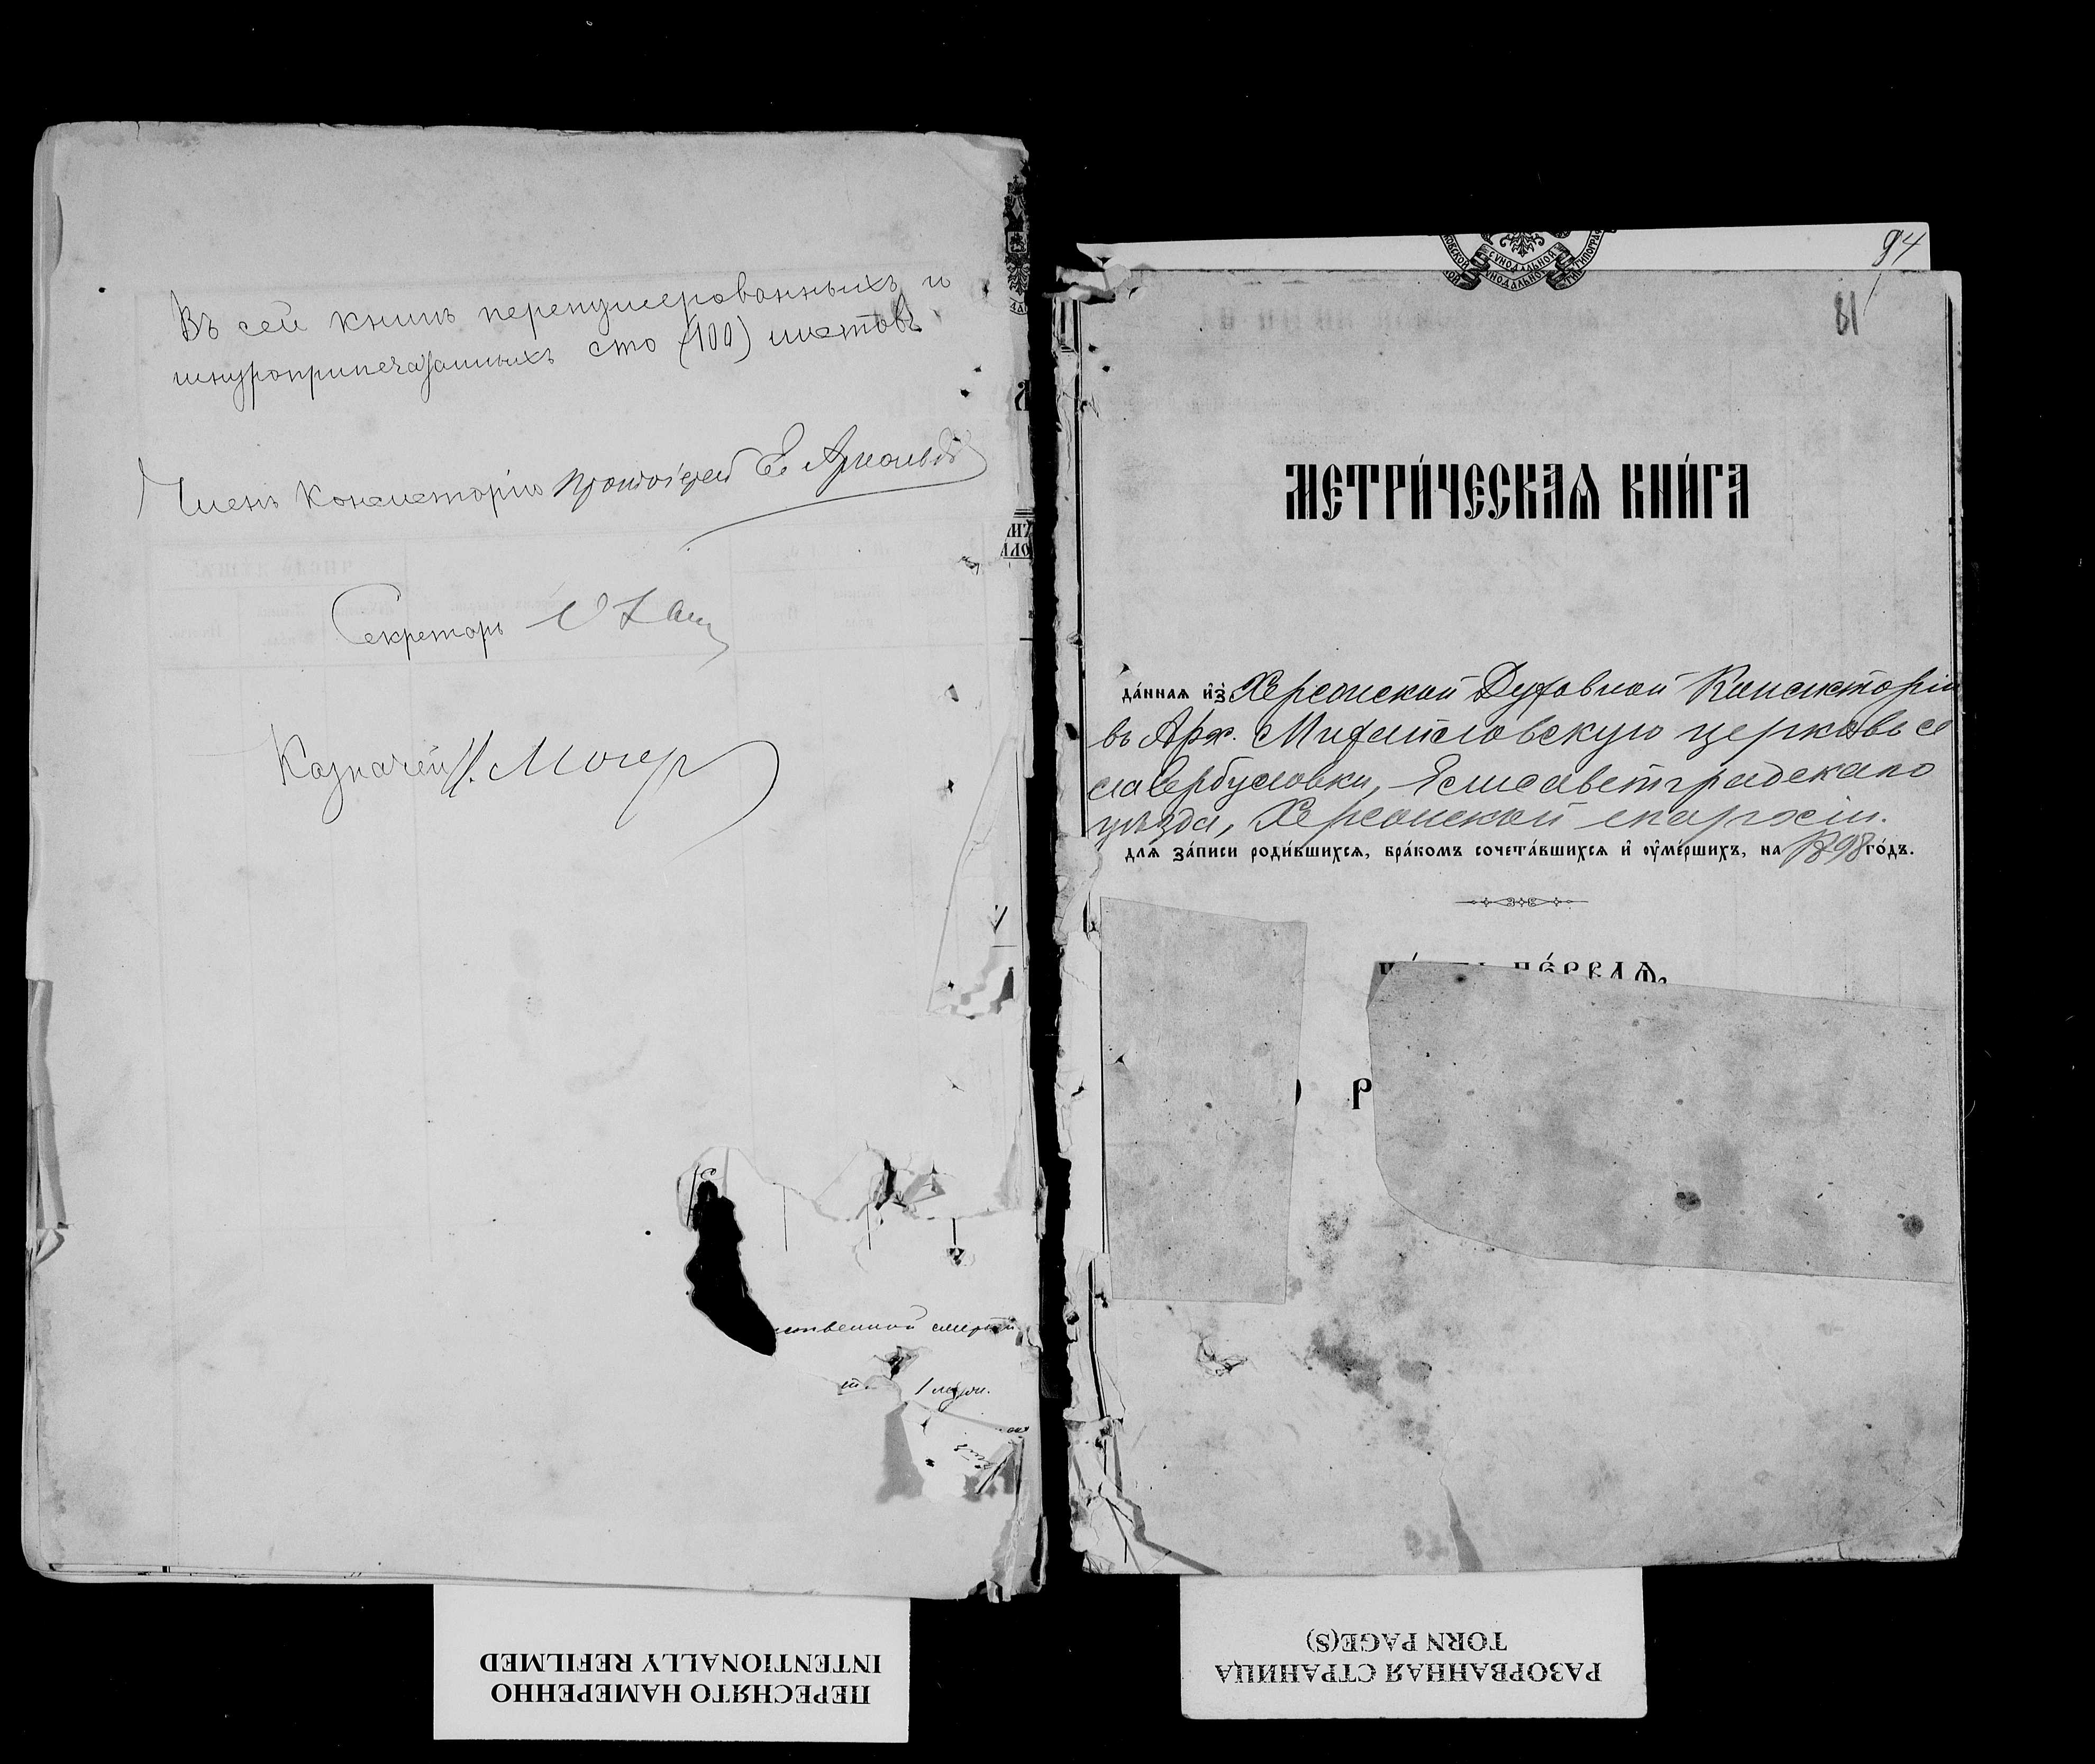 Въ сей книгѣ перенумерованныхъ и
шнуроприпечатанныхъ сто (100) листовъ
Членъ Консисторіи Протоіерей
Секретарь
Казначей
ственной смерти
94
81
МЕТРИ́ЧЕСКАѦ КНИ́ГА
да́ннаѧ и҆з̾ Херсонской Духовной Консисторіи
въ Арх. Михайловскую церковь се
ла Вербуловки, Елисаветградскаго
уѣзда, Херсонской епархіи.
длѧ за́писи роди́вшихсѧ, бра́комъ сочета́вшихсѧ и҆ ᲂу҆ме́ршихъ, на 1898 го́дъ.
ПЕ́РВАѦ,
Р
ПЕРЕСНЯТО НАМЕРЕННО
INTENTIONALLY REFILMED
РАЗОРВАННАЯ СТРАНИЦА
TORN PAGE(S)